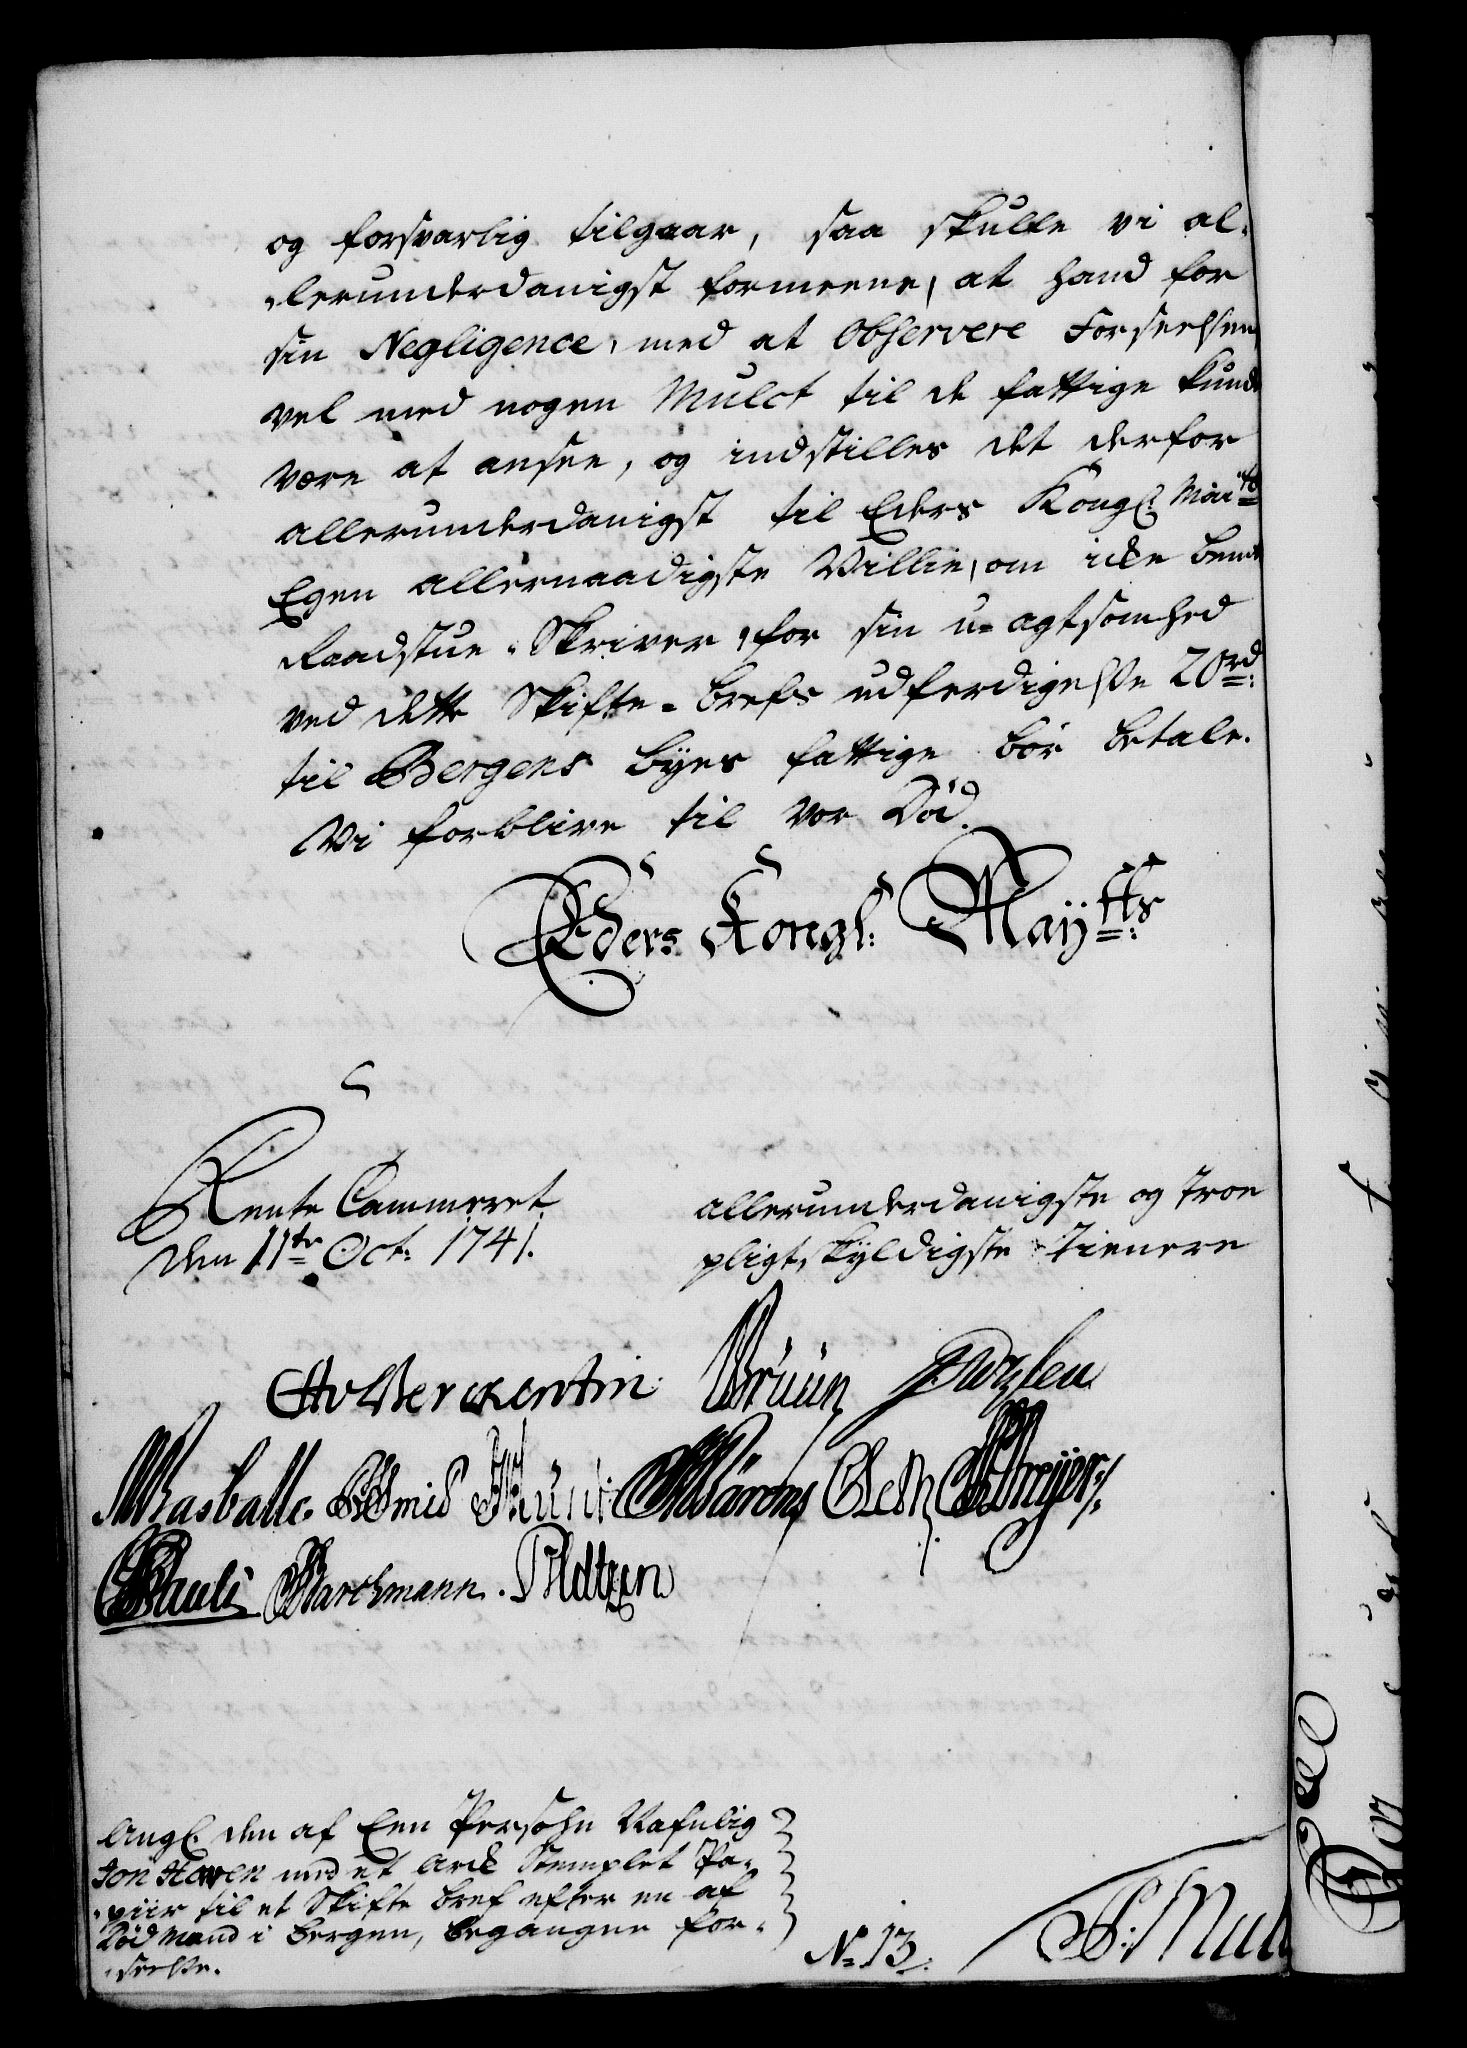 og forsvarlig tilgaar, saa skulle vi al-
-lerunderdanigst formeene, at hand for
sin Negligence, med at Observere Forseelsen
vel med nogen Mulct til de fattige kunde
være at ansee, og indstilles det derfor
allerunderdanigst til Eders Kongl: Maitz
Egen allernaadigste Villie, om icke bemte
Raadstue-Skriver, for sin u-agtsomhed
ved dette Skifte-brefs udferdigelse 20 rd:
til Bergens byes fattige bør betale.
Vi forblive til vor Død.
Eders Kongl: Mayтts:
Rente Cammeret
den 11te Oct: 1741.
allerunderdanigste og troe
pligtskyldigste Tienere
Berckentin Brüün
Basballe
Pauli Barchmann.
Angl. den af Een Persohn Nafnlig
Jon Haven med et Arck Stemplet Pa-
-piir til et Skifte bref efter en af
Død Mand i Bergen, begangne for-
-seelse.
No 13.